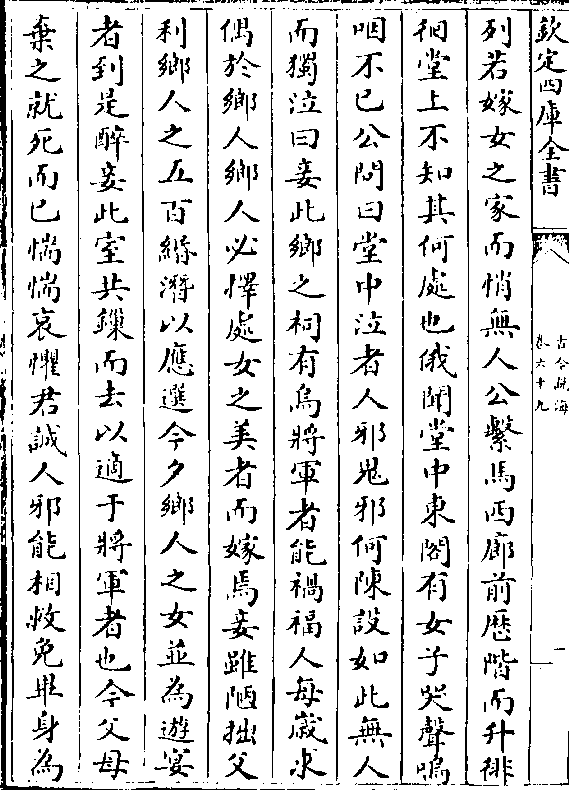 欽定四庫全書
古今說海
卷六十九
一
列若嫁女之家而悄無人公繫馬西廊前歷階而升徘
徊堂上不知其何處也俄聞堂中東閣有女子哭聲嗚
咽不已公問曰堂中泣者人邪鬼邪何陳設如此無人
而獨泣曰妾此鄉之祠有烏將軍者能禍福人每嵗求
偶於鄉人鄉人必擇處女之美者而嫁焉妾雖陋拙父
利鄉人之五百緡潛以應選今夕鄉人之女並為遊宴
者到是醉妾此室共鏁而去以適于將軍者也今父母
棄之就死而已惴惴哀懼君誠人邪能相救免畢身為